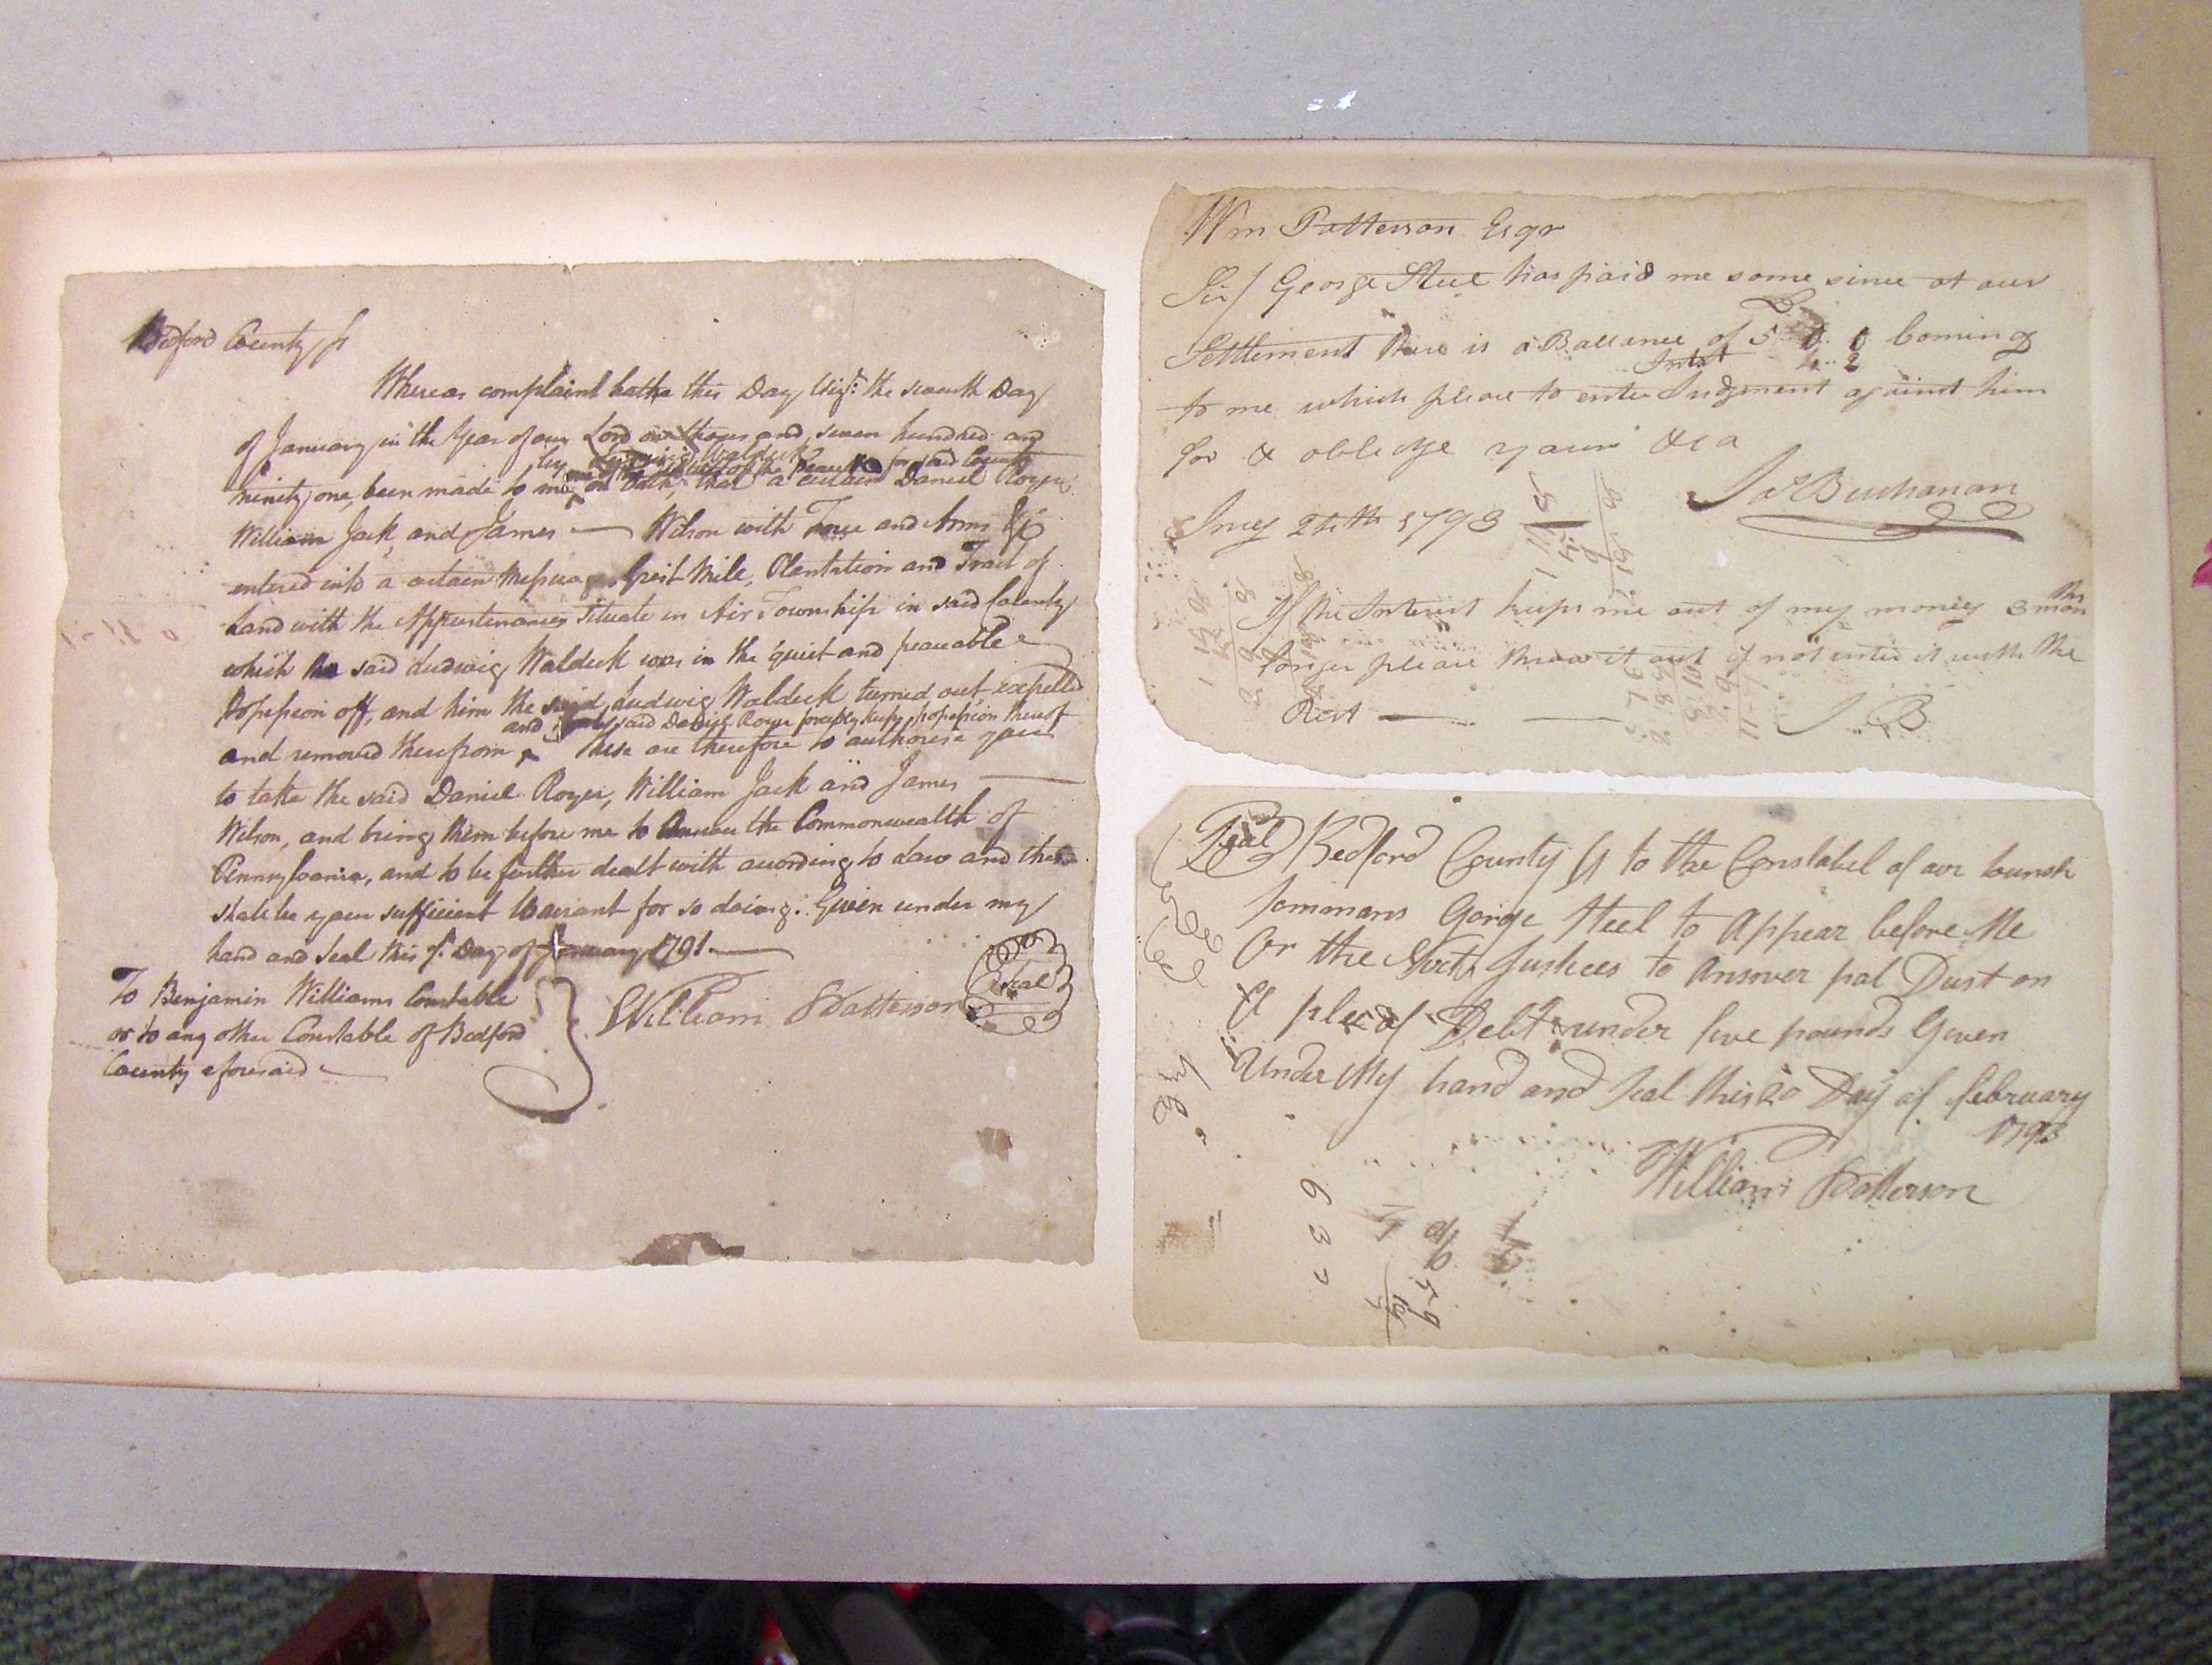 Bedford County ss
Whereas complaint hathe this Day Viz.t the seventh Day
of January in the Year of our Lord one thousand seven hundred and
by Ludwig Waldeck
one of the Justices of the Peace for said County
ninety one, been made to me on Oath, that a certain Daniel Royer
William Jack, and James — Wilson with Force and Arms &c
entered into a certain Messuage Grist Mile, Plantation and Tract of
Land with the Appurtenances situate in Air Township in said County
which the said Ludwig Waldeck was in the quiet and peaceable
Possession off, and him the said Ludwig Waldeck turned out expelled
and said Daniel Royer forcibly keeps possession thereof
and removed therefrom These are therefore to authorise you
to take the said Daniel Royer, William Jack and James —
Wilson, and bring them before me to Answer the Commonwealth of
Pennsylvania, and to be further dealt with according to Law and this
shall be your sufficient Warrant for so doing. Given under my
hand and Seal this 7th Day of January 1791 —
To Benjamin Williams Constable
or to any other Constable of Bedford
County aforesaid —
William Patterson
Seal
Wm Patterson Esqr
Sir/ George Steel has paid me some since at our
Settlement there is a Ballance of 5 0 0 Coming
Intrst 4 2
to me which please to enter Judgment against him
for & obledge your &c a
Jas Buchanan
Jany 24th 1793
If the Interest keeps me out of my money 3 mon
ths
longer please throw it out if not enter it with the
Rest — —
J B
Seal Bedford County ss to the Constabel of aor tounsh
Sommans Gorge Steel to Appear before Me
Or the Nixt Justices to Answer pat Dust on
A plee of Debt under five pounds Given
Under My hand and Seal this 20 Day of february
1793
William Patterson
6 3